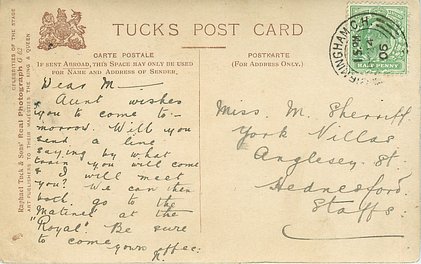 TUCKS POST CARD
CARTE POSTALE
POSTKARTE
IF SENT ABROAD, THIS SPACE MAY ONLY BE USED
FOR NAME AND ADDRESS OF SENDER.
(FOR ADDRESS ONLY.)
CELEBRITIES OF THE STAGE
Raphael Tuck & Sons' Real Photograph
ART PUBLISHERS TO THEIR MAJESTIES THE KING & QUEEN
BIRMINGHAM C.H.
06
HALF PENNY
Dear M—
Aunt wishes
you to come to-
morrow. Will you
send a line
saying by what
train you will come
& I will meet
you? We can then
both go to the
Matinee at the
"Royal". Be sure
to come
yours affec:
Miss M. Sherriff
York Villas
Anglesey St.
Hednesford
Staffs.